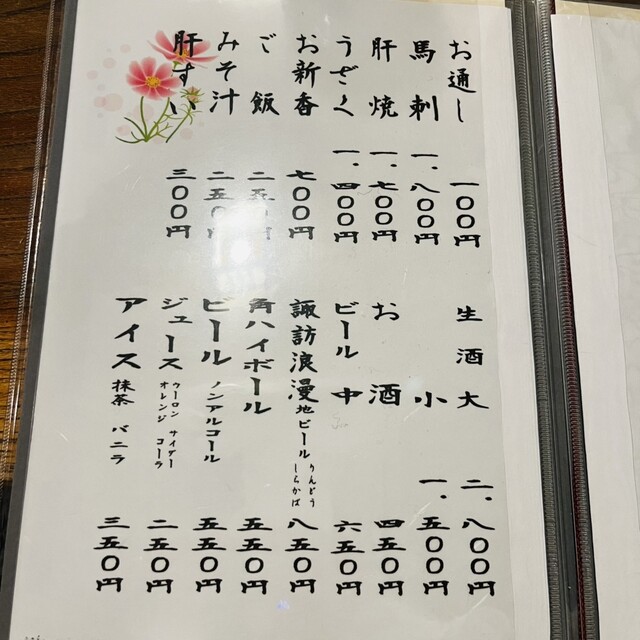 お通し 一〇〇円
馬刺 一、八〇〇円
肝焼 一、七〇〇円
うざく 一、四〇〇円
お新香 七〇〇円
ご飯 二五〇円
みそ汁 二五〇円
肝すい 三〇〇円
生酒 大 二、八〇〇円
小 一、五〇〇円
お酒 四五〇円
ビール 中 六五〇円
諏訪浪漫 地ビール りんどう しらかば 八五〇円
角ハイボール 五五〇円
ビール ノンアルコール 五五〇円
ジュース ウーロン サイダー オレンジ コーラ 二五〇円
アイス 抹茶 バニラ 三五〇円